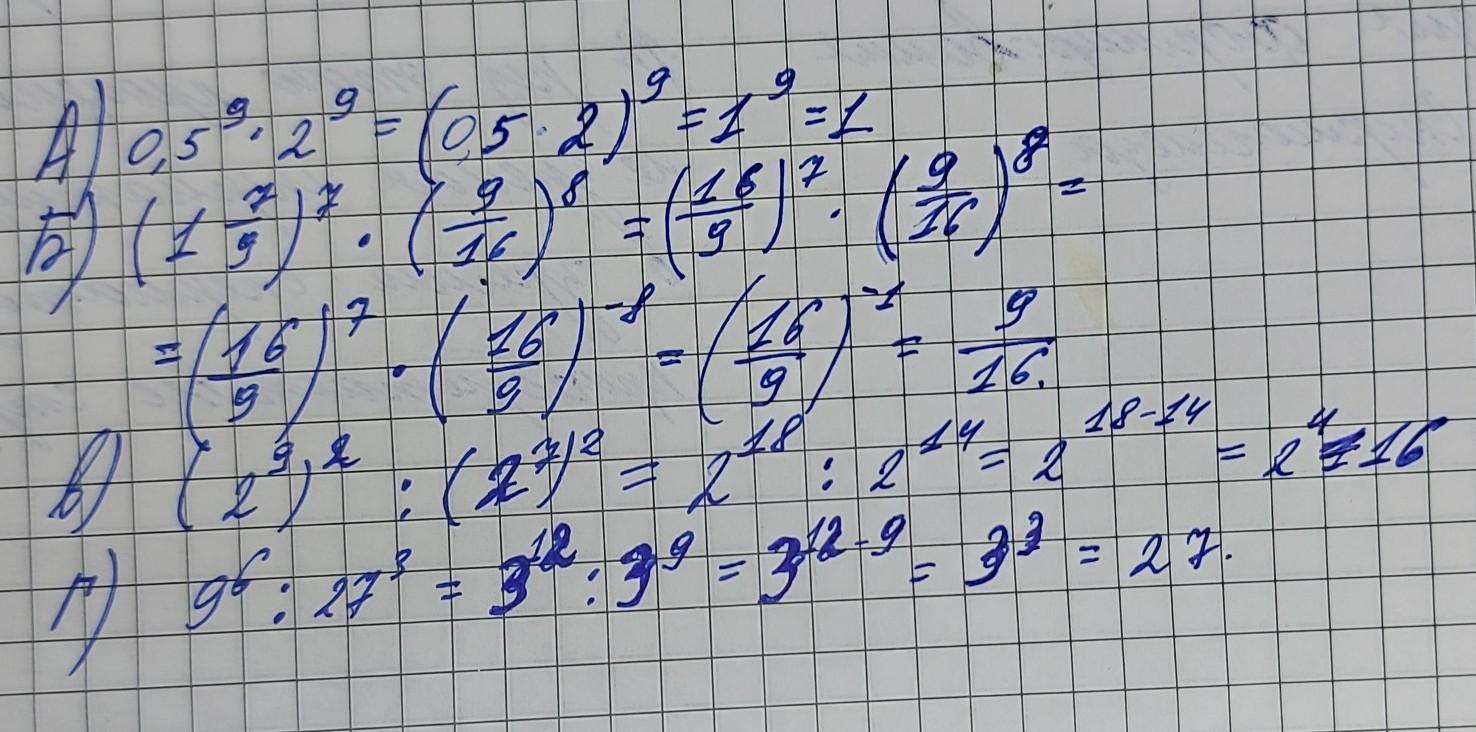 А) 0,5⁹ · 2⁹ = (0,5 · 2)⁹ = 1⁹ = 1
Б) (1 7/9)⁷ · (9/16)⁸ = (16/9)⁷ · (9/16)⁸ =
= (16/9)⁷ · (16/9)⁻⁸ = (16/9)⁻¹ = 9/16.
в) (2⁹)² : (2⁷)² = 2¹⁸ : 2¹⁴ = 2¹⁸⁻¹⁴ = 2⁴ = 16
г) 9⁶ : 27³ = 3¹² : 3⁹ = 3¹²⁻⁹ = 3³ = 27.